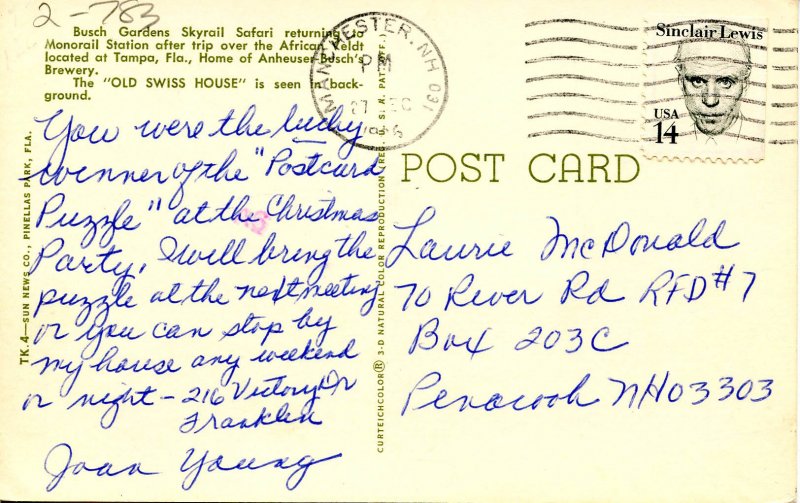 2-783
Busch Gardens Skyrail Safari returning to
Monorail Station after trip over the African Veldt
located at Tampa, Fla., Home of Anheuser-Busch's
Brewery.
The "OLD SWISS HOUSE" is seen in back-
ground.
You were the lucky
winner of the "Postcard
Puzzle" at the Christmas
Party. I will bring the
puzzle at the next meeting
or you can stop by
my house any weekend
or night - 216 Victory Dr
Franklin
Joan Young
TK. 4—SUN NEWS CO., PINELLAS PARK, FLA.
CURTEICHCOLOR® 3-D NATURAL COLOR REPRODUCTION U.S.A. PAT. OFF.
MANCHESTER, NH 031
PM
27 DEC
Sinclair Lewis
USA
14
POST CARD
Laurie McDonald
70 River Rd RFD #7
Box 203C
Penacook NH 03303